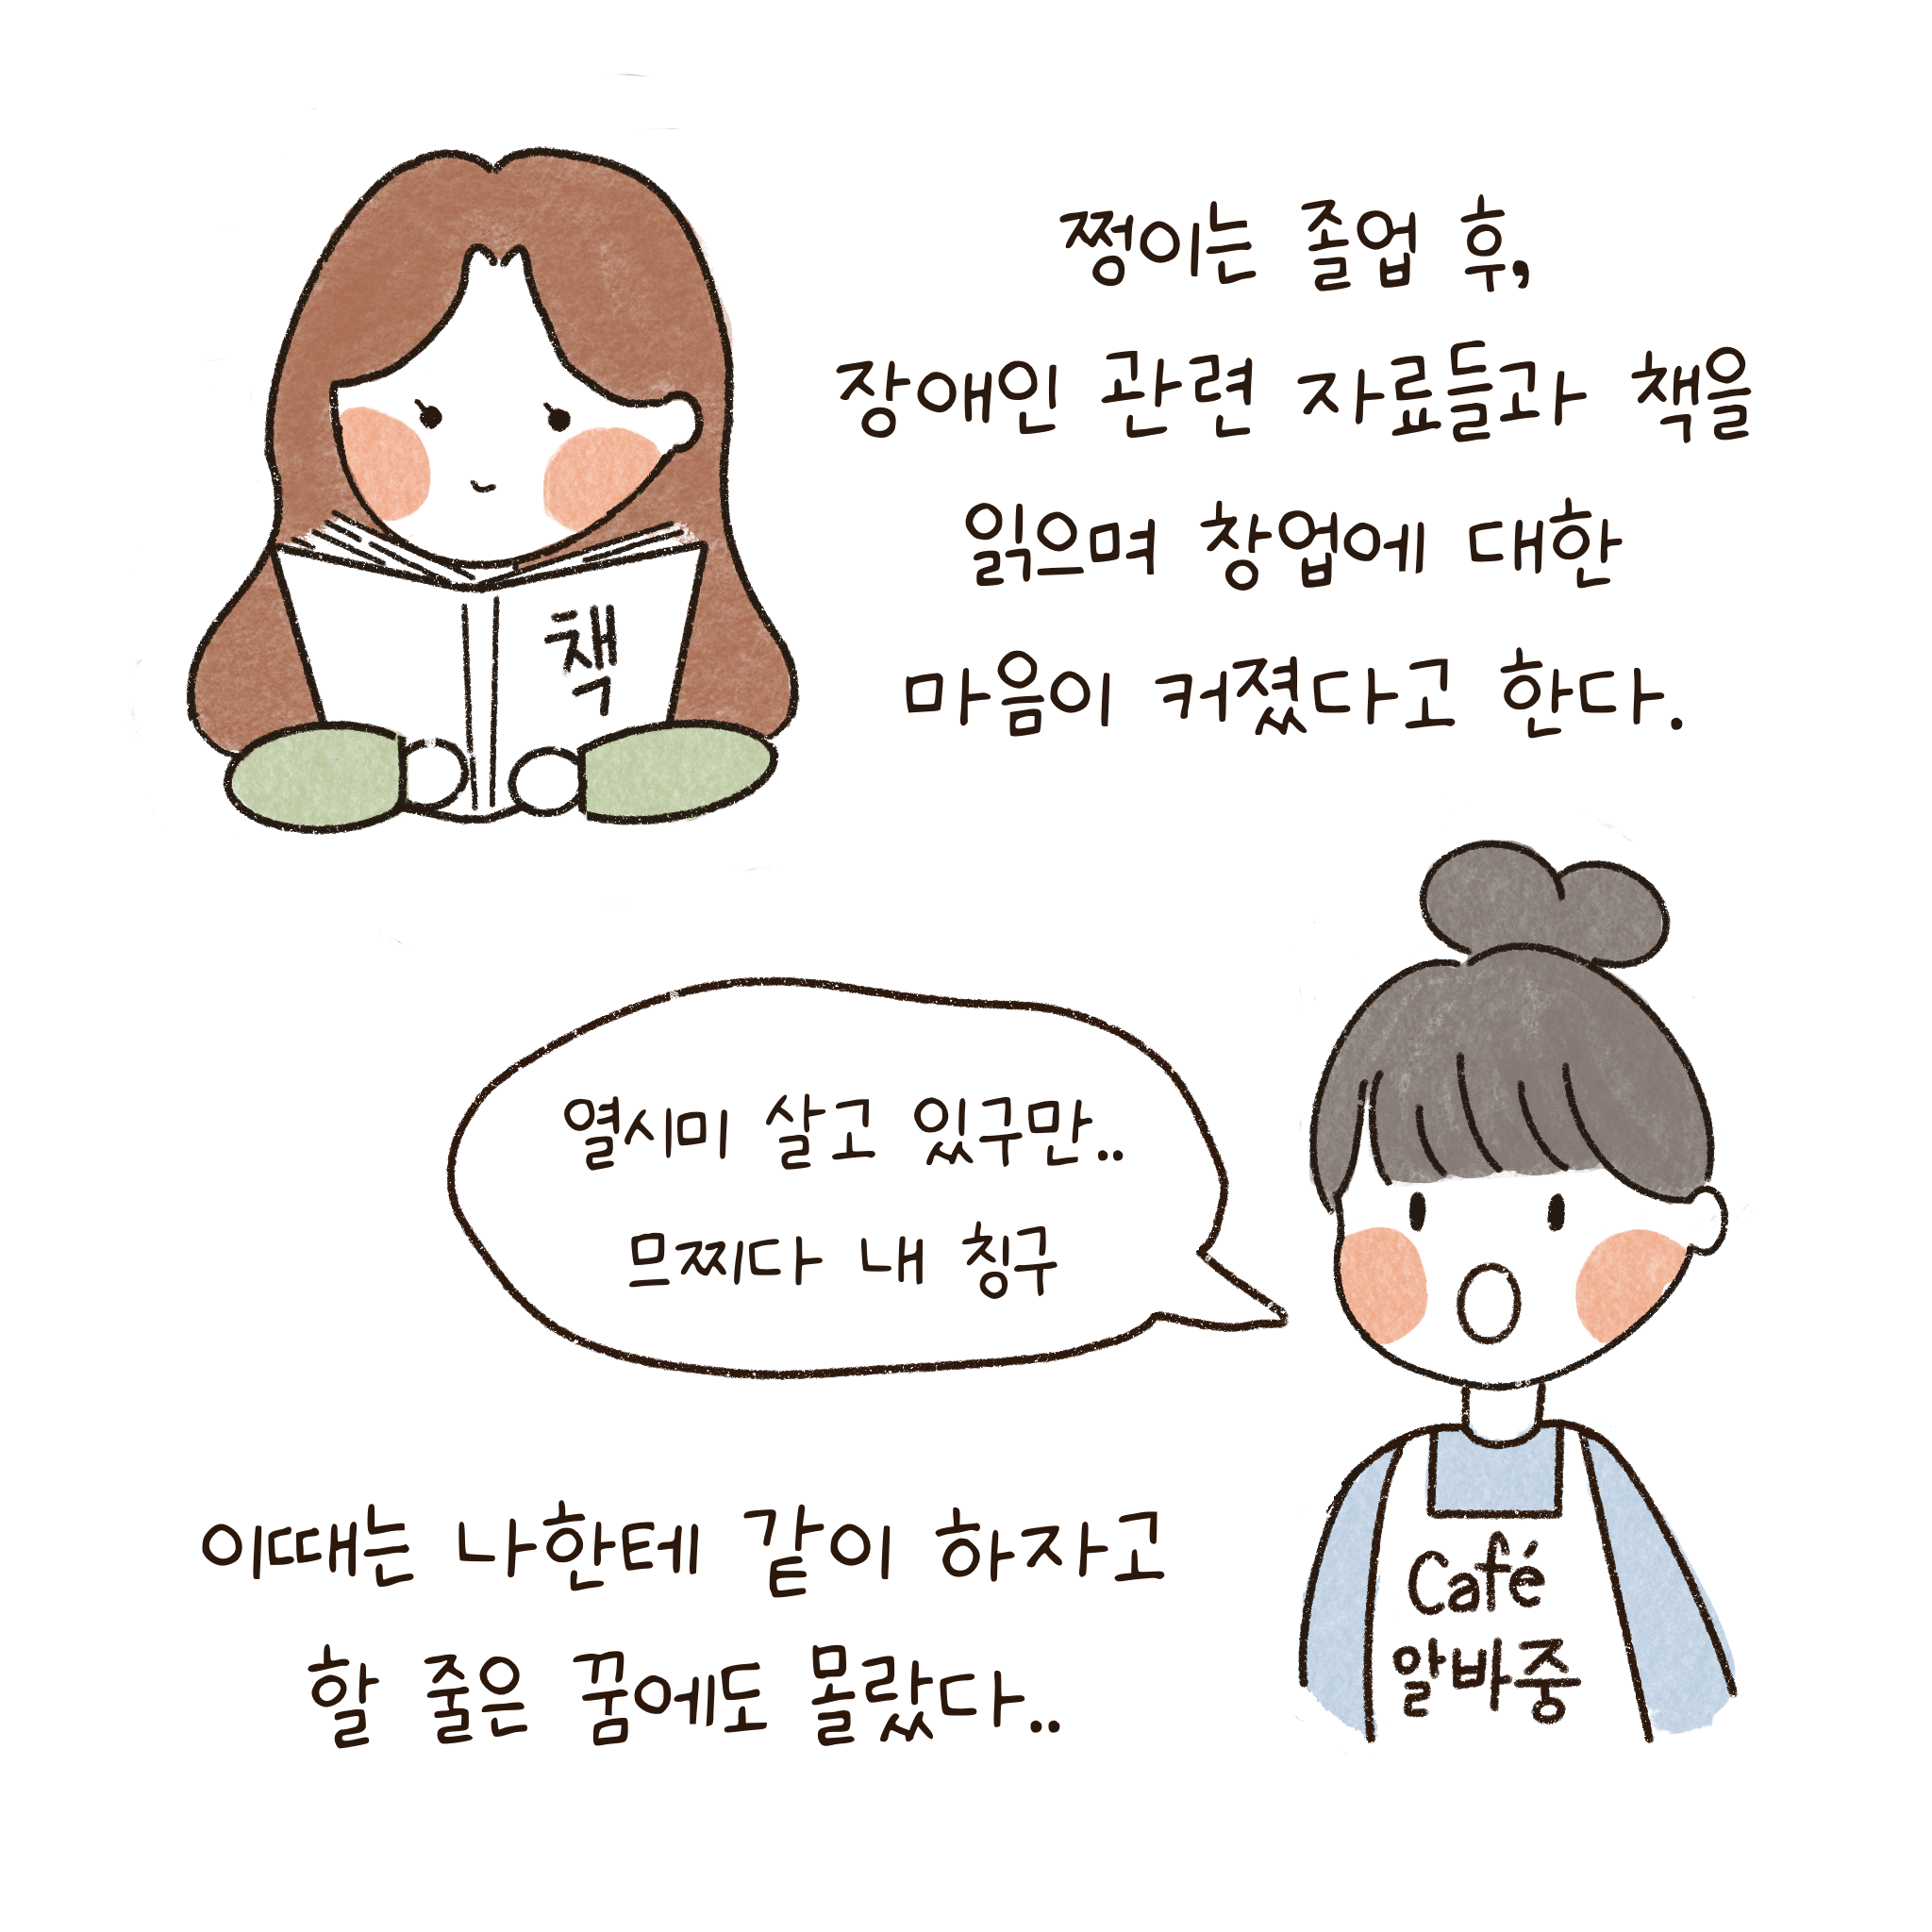 쩡이는 졸업 후,
장애인 관련 자료들과 책을
읽으며 창업에 대한
마음이 커졌다고 한다.
책
열시미 살고 있구만..
므찌다 내 칭구
이때는 나한테 같이 하자고
할 줄은 꿈에도 몰랐다..
Café
알바중